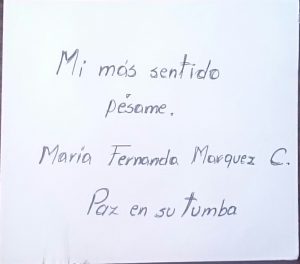 Mi más sentido
pésame.
María Fernanda Marquez C.
Paz en su tumba